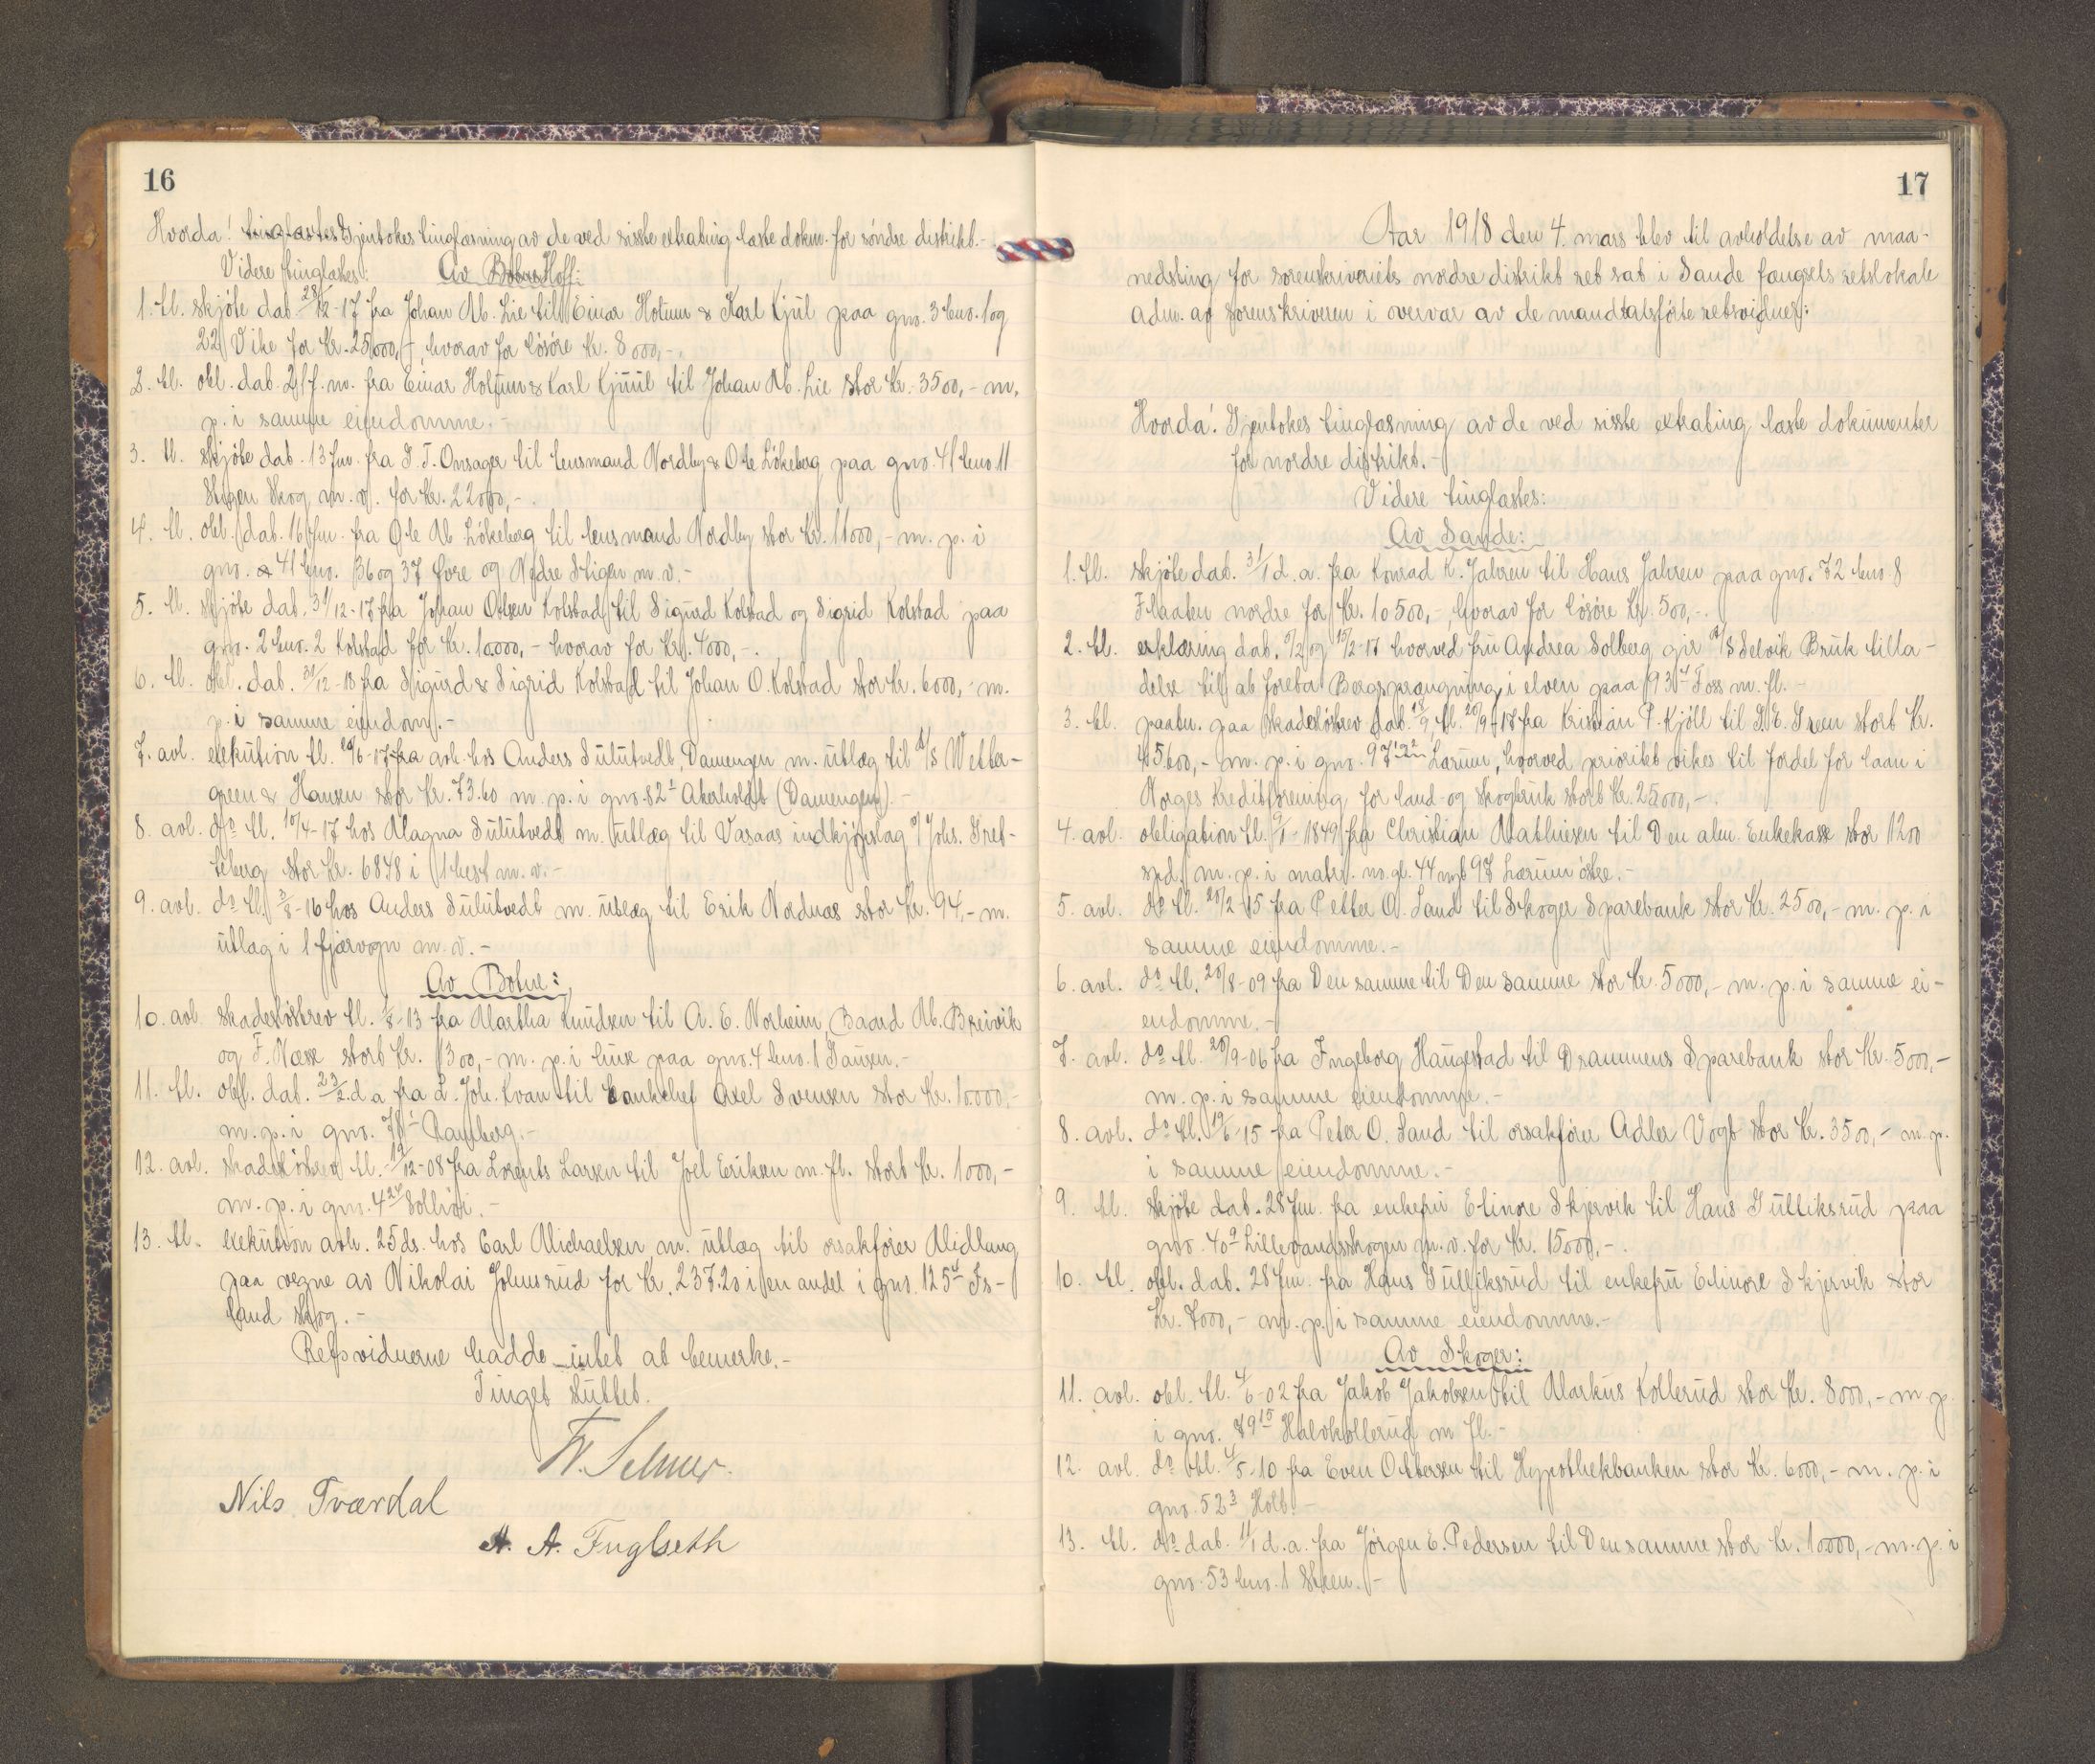 16
Hvorda! tinglæstes Gjentokes tinglæsning av de ved sisste extrating læste dokm. for söndre distrikt.-
Videre tinglæstes: Av Botne Hoff:
1. tl. skjöte dat. 28/12-17 fra Johan M. Lie til Einar Holtum & Karl Kjul paa gno. 3 bno. 1 og
22 Vike for Kr. 25000,-, hvorav for lösöre Kr. 8000,-.
2. tl. obl. dat. 2/1 f.m. fra Einar Holtum & Karl Kjuul til Johan M. Lie stor Kr. 3500,- m.
p. i samme eiendomme.-
3. tl. skjöte dat. 13 fm. fra J. T. Onsager til lensmand Nordby & Ole Lökeberg paa gno. 41 bno. 11
Stigen Skog m. v. for Kr. 22000,-.
4. tl. obl. dat. 16 fm. fra Ole M. Lökeberg til lensmand Nordby stor Kr. 11000,- m. p. i
gno. 41 bno. 36 og 37 övre og Nedre Stigen m. v.-
5. tl. skjöte dat. 31/12-17 fra Johan Olsen Kolstad til Sigurd Kolstad og Sigrid Kolstad paa
gno. 2 bno. 2 Kolstad for Kr. 10.000,- hvorav for Kr. 4000,-.
6. tl. obl. dat. 31/12-18 fra Sigurd & Sigrid Kolstad til Johan O. Kolstad stor Kr. 6000,- m.
p. i samme eiendom.-
7. avl. exekution tl. 20/6-17 fra avh. hos Anders Sulutvedt, Damengen m. utlæg til A/S Wetter-
green & Hansen stor Kr. 73.60 m. p. i gno. 82 Akerholdt (Damengen).-
8. avl. do tl. 10/4-17 hos Magna Sulutvedt m. utlæg til Vasaas indkjöpslag v/ Johs. Gret-
teberg stor Kr. 6848 i 1 hest m. v.-
9. avl. do tl. 3/8-16 hos Anders Sulutvedt m. utlæg til Erik Nordnæs stor Kr. 94,- m.
utlæg i 1 fjærvogn m. v.-
Av Botne:
10. avl. skadeslösbrev tl. 1/8-13 fra Martha Knudsen til A. E. Norheim, Baard M. Breivik
og F. Næss stort Kr. 1300,- m. p. i huse paa gno. 4 bno. 1 Gausen.-
11. tl. obl. dat. 23/2 d. a. fra L. Joh. Kvan til bankchef Axel Svensen stor Kr. 10.000,-
m. p. i gno. Ramberg.-
12. avl. skadeslösbrev tl. 12/12-08 fra Lorents Larsen til Joel Eriksen m. fl. stort Kr. 1000,-
m. p. i gno. 4 Solhöi.-
13. tl. exekution avh. 25 ds. hos Carl Michaelsen m. utlæg til orsakförer Midling
paa vegne av Nikolai Johnsrud for Kr. 237.20 i en andel i gno. 125 Is-
land Skog.-
Retsvidnerne hadde intet at bemerke.-
Tinget sluttet.
Fr. Selmer.
Nils Tværdal
A. A. Fuglseth
17
Aar 1918 den 4. mars blev til avholdelse av maa-
nedsting for sorenskriveriets nordre distrikt ret sat i Sande fængsels retslokale
adm. av sorenskriveren i overvær av de mandtalsförte retsvidner:
Hvorda! Gjentokes tinglæsning av de ved sisste extrating læste dokumenter
for nordre distrikt.-
Videre tinglæstes:
Av Sande:
1. tl. skjöte dat. 3/1 d. a. fra Konrad K. Jahren til Hans Jahren paa gno. 72 bno 8
Flaaten nordre for Kr. 10500,-, hvorav for lösöre Kr. 500,-.
2. tl. erklæring dat. 6/2 og 15/2-17 hvorved fru Andrea Solberg gir A/S Selvik Bruk tilla-
delse til at foreta Bergsprængning i elven paa 93 Foss m. fl.-
3. tl. paatn. paa skadeslösbrev dat. 18/9, tl. 20/9-17 fra Kristian P. Kjöll til L. E. Green stort Kr.
45600,- m. p. i gno. 97 Lærum, hvorved prioritet vikes til fordel for laan i
Norges Kreditforening for land- og skogbruk stort Kr. 25000,-.
4. avl. obligation tl. 9/1-1849 fra Christian Mathiesen til Den alm. Enkekasse stor 1200
spd. m. p. i matr. no. gl. 44 nyt 97 Lærum östre.-
5. avl. do tl. 20/2-15 fra Petter O. Sand til Skoger Sparebank stor Kr. 2500,- m. p. i
samme eiendomme.-
6. avl. do tl. 20/8-09 fra Den samme til Den samme stor Kr. 5000,- m. p. i samme ei-
endomme.-
7. avl. do tl. 20/9-06 fra Ingeborg Haugestad til Drammens Sparebank stor Kr. 5000,-
m. p. i samme eiendomme.-
8. avl. do tl. 19/6-15 fra Peter O. Sand til orsakförer Adler Vogt stor Kr. 3500,- m. p.
i samme eiendomme.-
9. tl. skjöte dat. 28 fm. fra enkefru Elinore Skjervik til Hans Gulliksrud paa
gno. 40 Lillevandsskogen m. v. for Kr. 15000,-.
10. tl. obl. dat. 28 fm. fra Hans Gulliksrud til enkefru Elinore Skjervik stor
Kr. 7000,- m. p. i samme eiendomme.-
Av Skoger:
11. avl. obl. tl. 4/6-02 fra Jakob Jakobsen til Markus Kollerud stor Kr. 8000,- m p.
i gno. 89 15 Halvkollerud m fl.-
12. avl. do obl. 4/5-10 fra Even Ottersen til Hypothekbanken stor Kr. 6000,- m. p. i
gno. 52 3 Holt.-
13. tl. do dat. 11/1 d. a. fra Jörgen E. Pedersen til Den samme stor Kr. 10000,- m. p. i
gno. 53 bno. 1 Steen.-